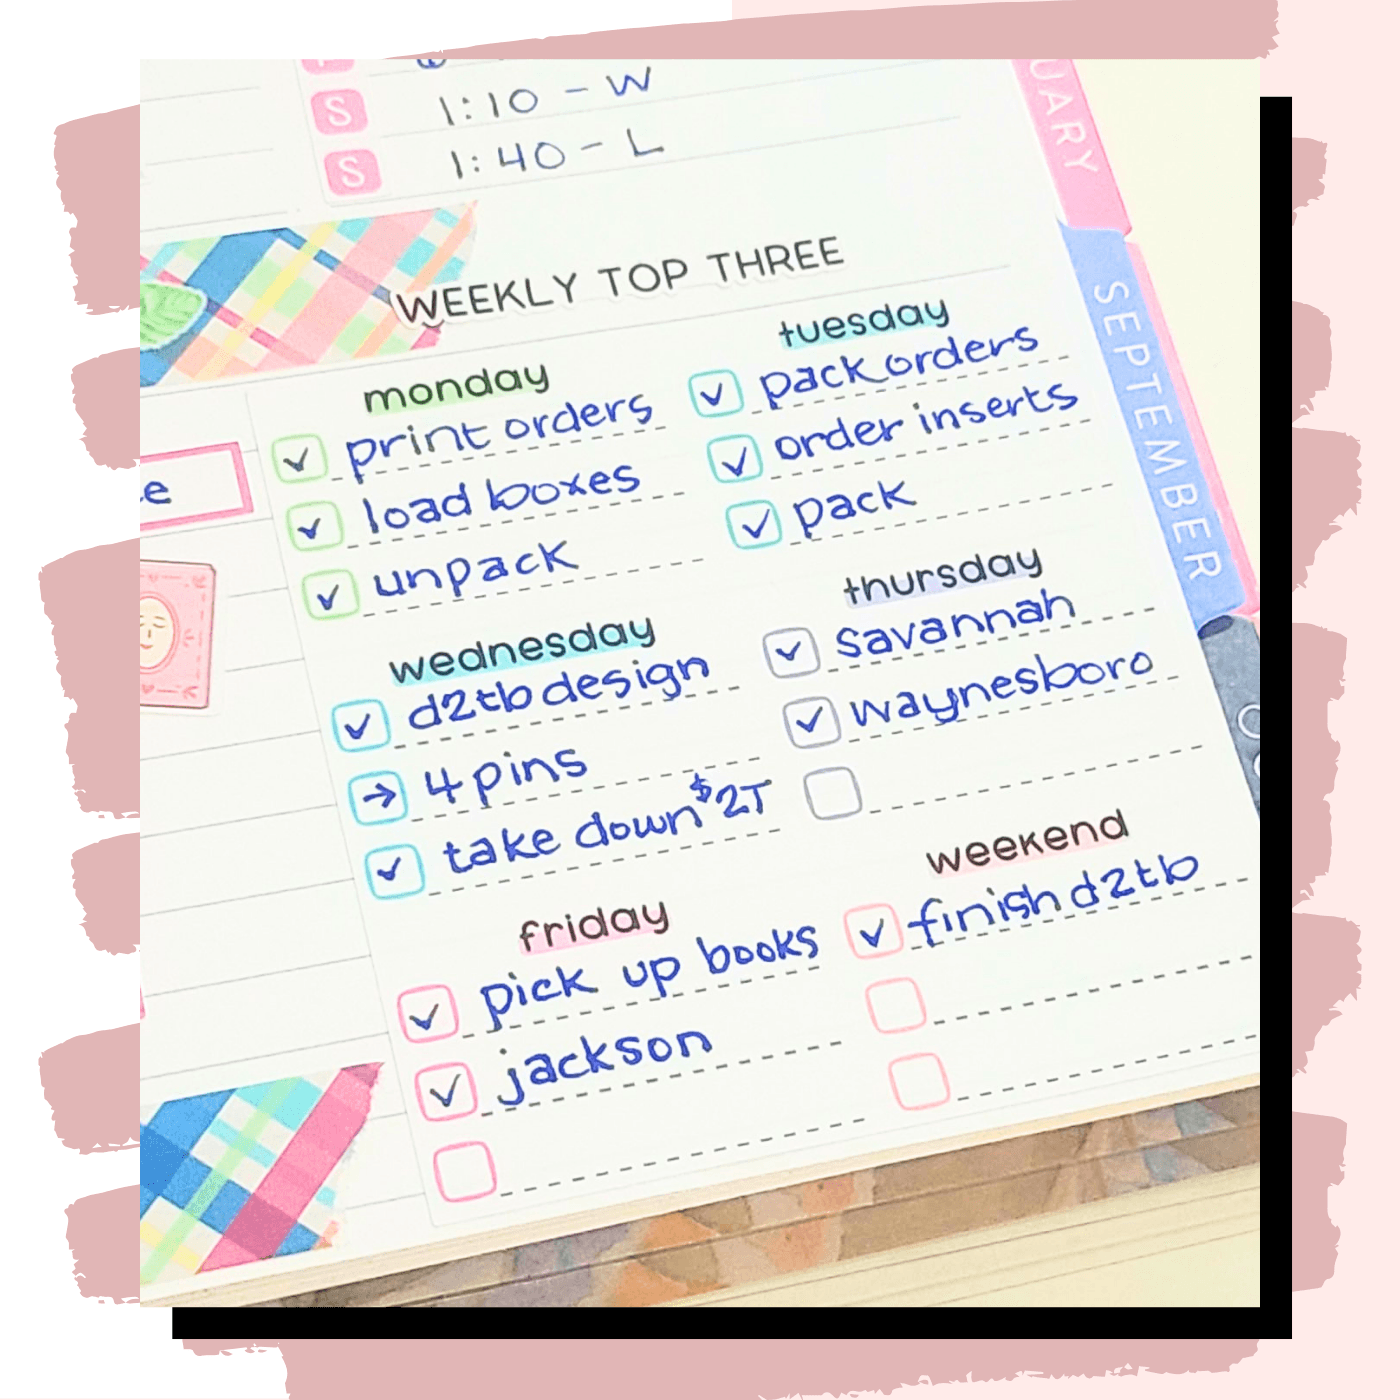 S 1:10 - W
S 1:40 - L
WEEKLY TOP THREE
monday
print orders
load boxes
unpack
tuesday
pack orders
order inserts
pack
wednesday
d2tb design
4 pins
take down $2T
thursday
savannah
waynesboro
friday
pick up books
jackson
weekend
finish d2tb
UARY
SEPTEMBER
e